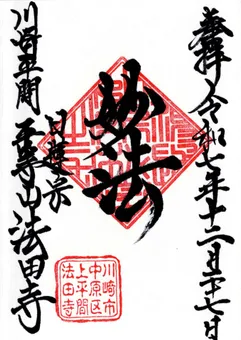 奉拝 令和七年十二月二十七日
妙法
日蓮宗
川崎平間 平等山 法田寺
川崎市
中原区
上平間
法田寺